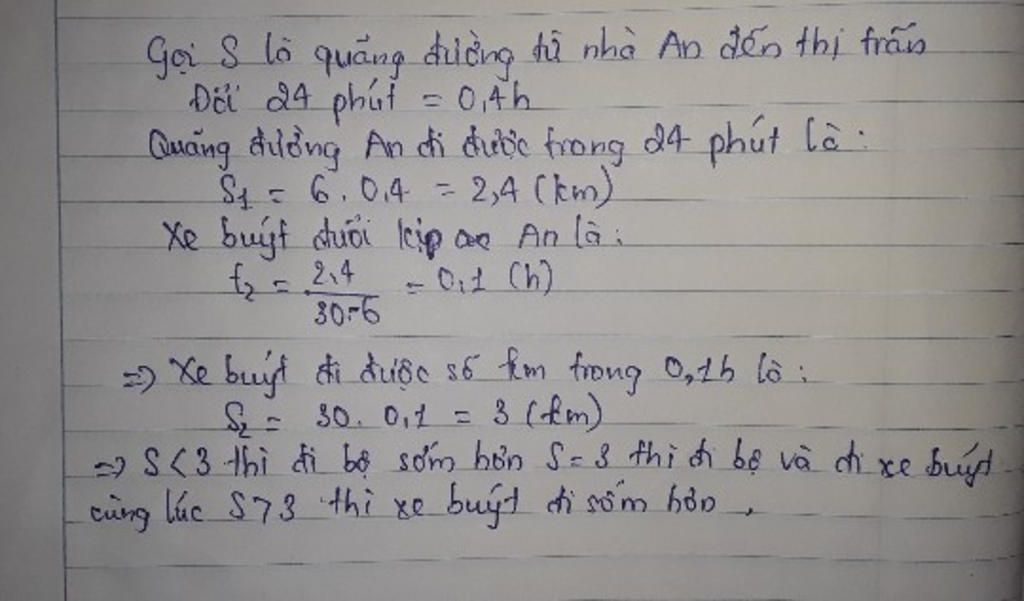 Gọi S là quãng đường từ nhà An đến thị trấn
Đổi 24 phút = 0,4h
Quãng đường An đi được trong 24 phút là:
S1 = 6 . 0,4 = 2,4 (km)
Xe buýt đuổi kịp An là:
t2 = 2,4 / 30-6 = 0,1 (h)
=> Xe buýt đi được số km trong 0,1h là:
S2 = 30. 0,1 = 3 (km)
=> S<3 thì đi bộ sớm hơn S=3 thì đi bộ và đi xe buýt
cùng lúc S>3 thì xe buýt đi sớm hơn.